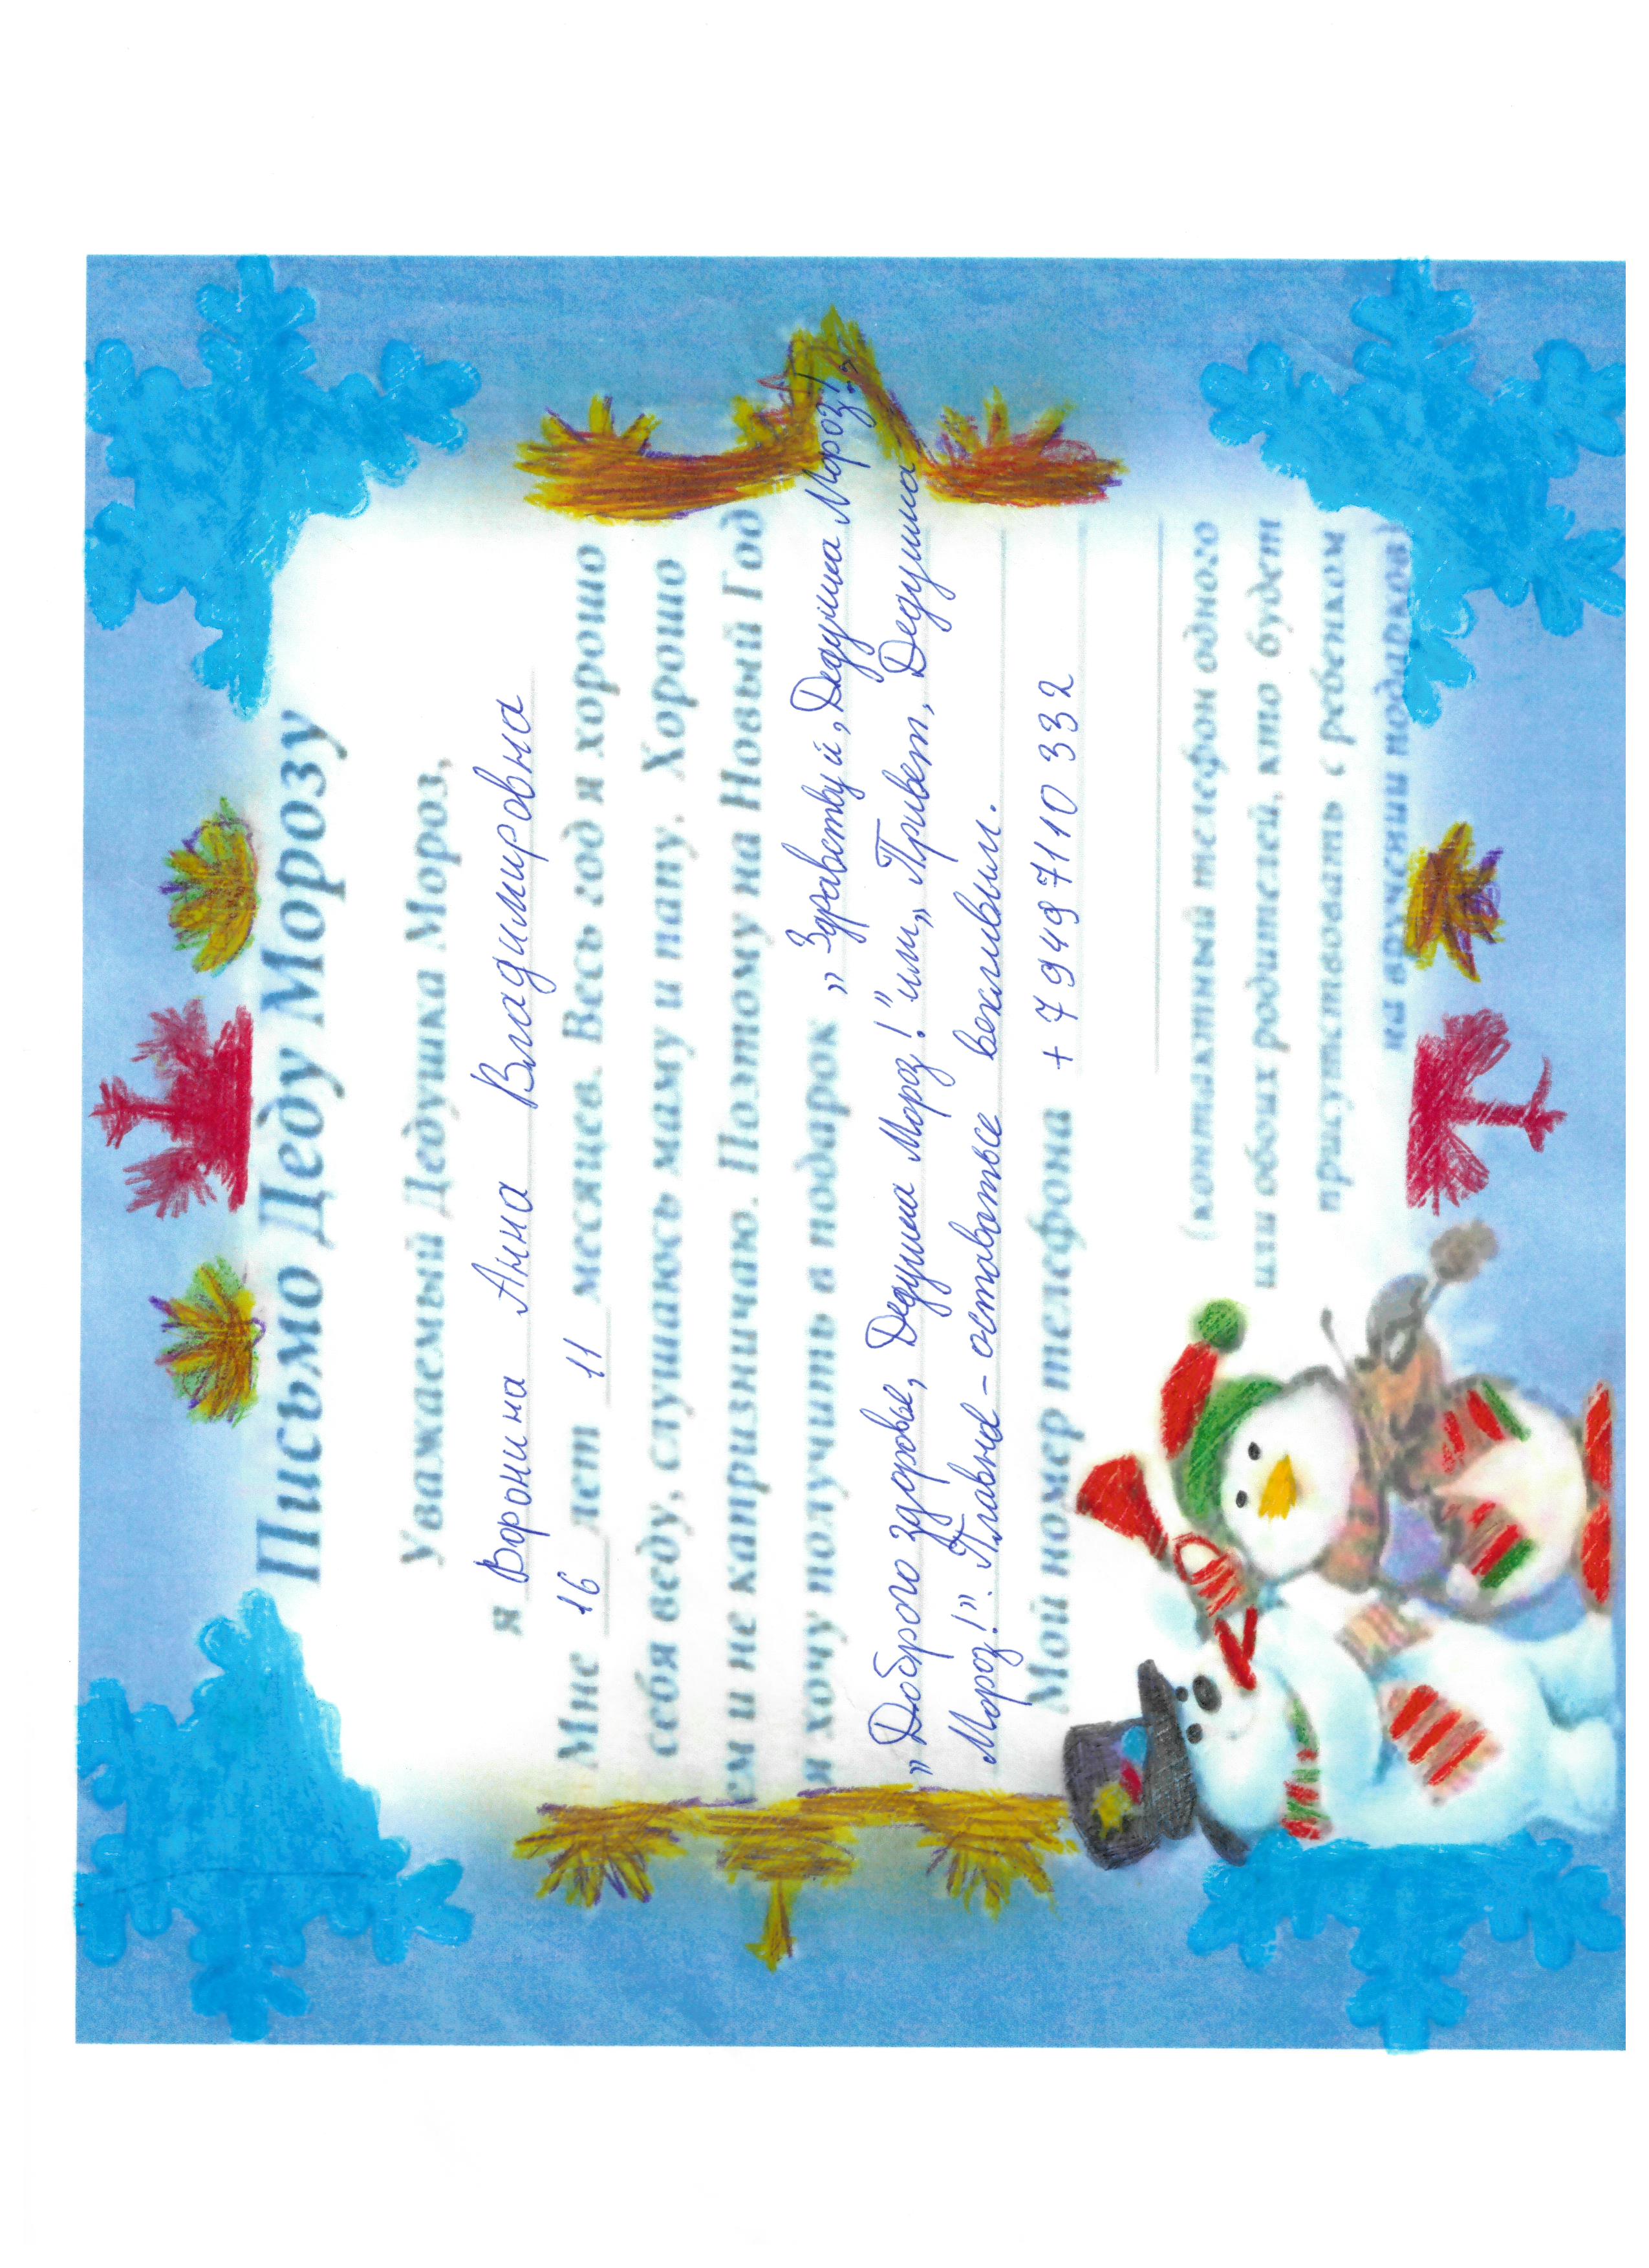 Письмо Деду Морозу
Уважаемый Дедушка Мороз,
я Воронина Анна Владимировна
Мне 16 лет 11 месяцев. Весь год я хорошо
себя веду, слушаюсь маму и папу. Хорошо
ем и не капризничаю. Поэтому на Новый Год
я хочу получить в подарок „Здравствуй, Дедушка Мороз!”,
„Доброго здоровье, Дедушка Мороз!” или „Привет, Дедушка
Мороз!”. Главное – оставаться вежливым.
Мой номер телефона +79497110332
(контактный телефон одного
или обоих родителей, кто будет
присутствовать с ребенком
на вручении подарков)